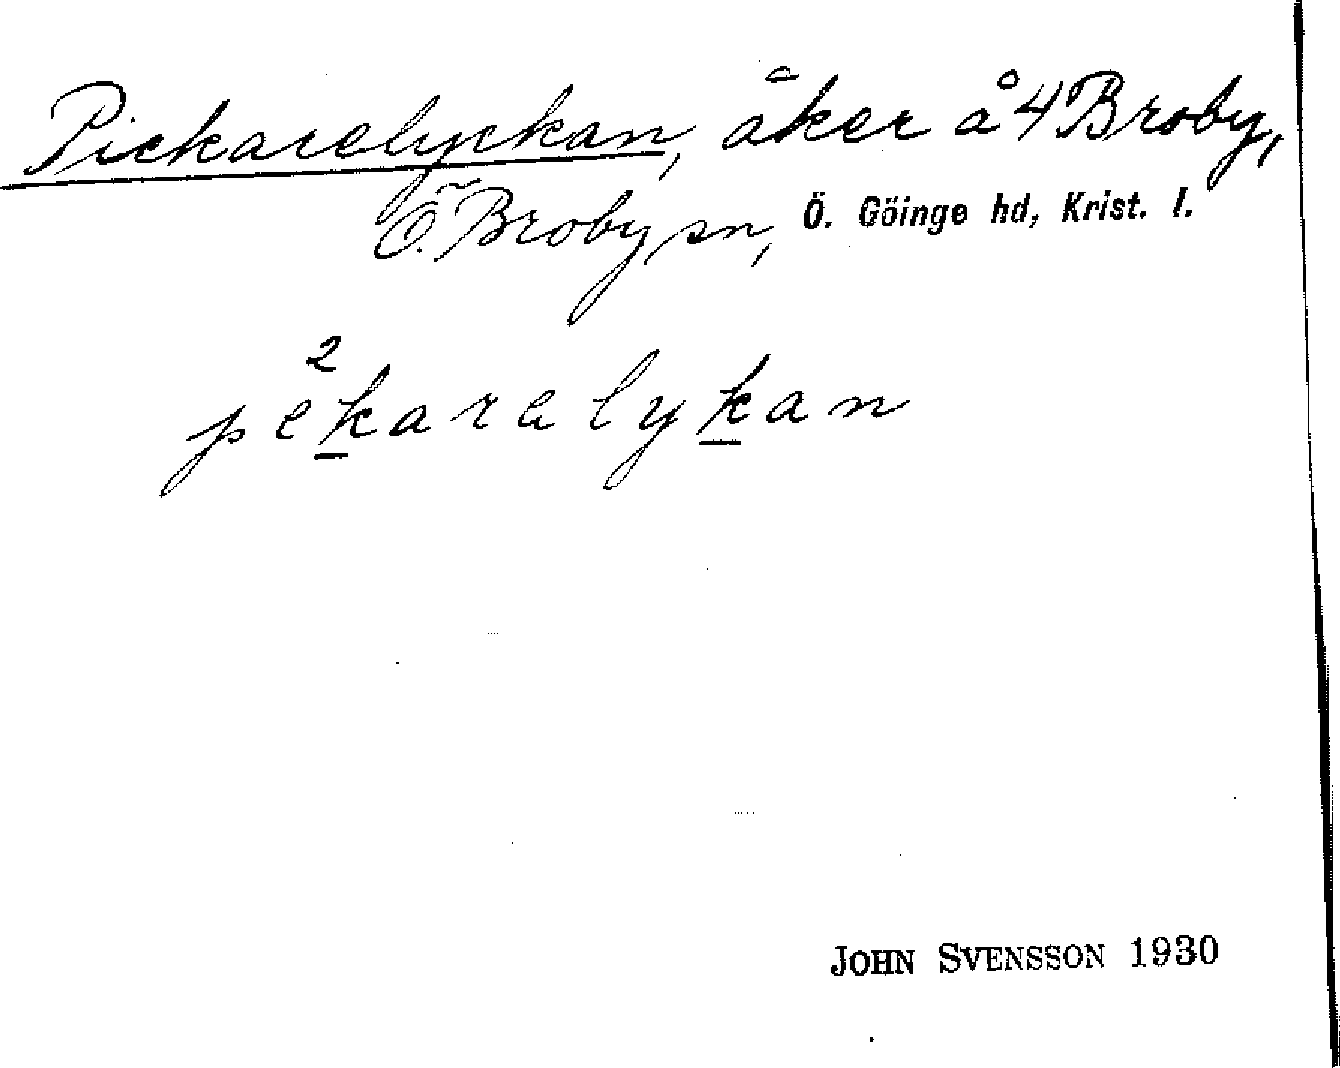 Pickarelyckan, åker å 4 Broby,
Ö. Broby sn, Ö. Göinge hd, Krist. l.
pe²karalykan
JOHN SVENSSON 1930